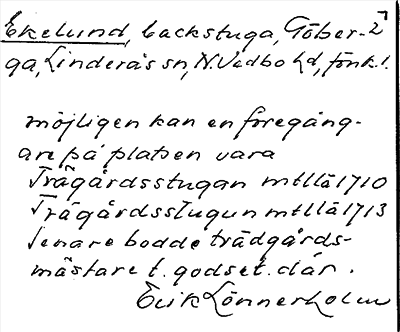 Ekelund, backstuga, Göber-
ga, Linderås sn, N. Vedbo hd, Jönk. l.
möjligen kan en föregång-
are på platsen vara
Trägårdsstugan mtllä 1710
Trägårdsstugun mtllä 1713
Senare bodde trädgårds-
mästare t. godset där.
Erik Lönnerholm